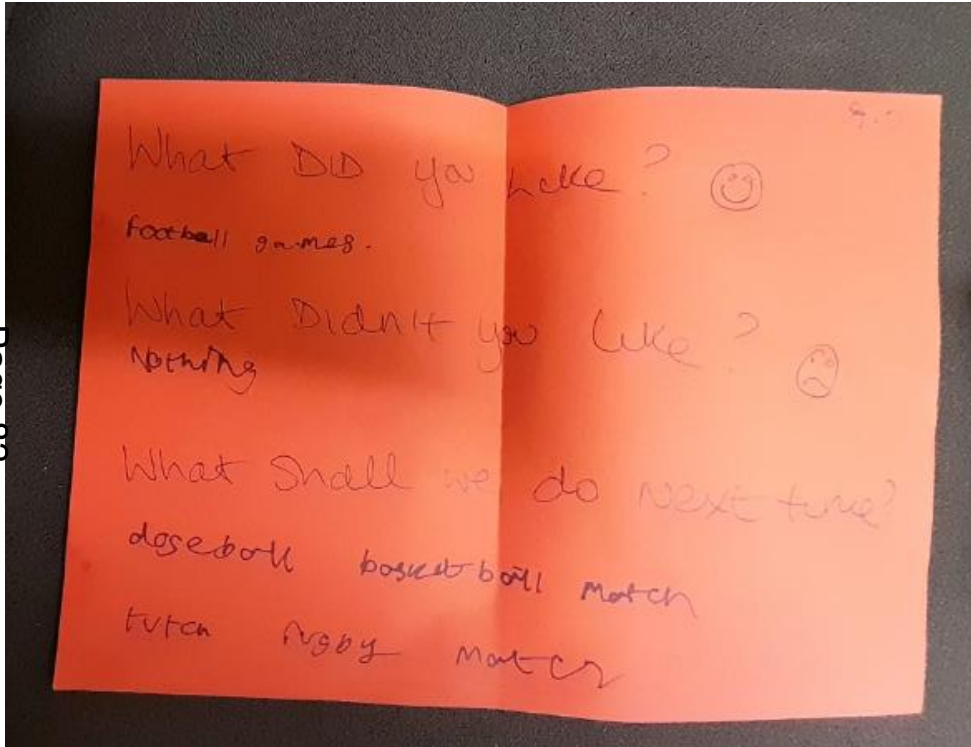 What DID you Like?
football games.
What Didn't you Like?
Nothing
What Shall we do Next time?
dogeball basketball Match
tutch rugby Match